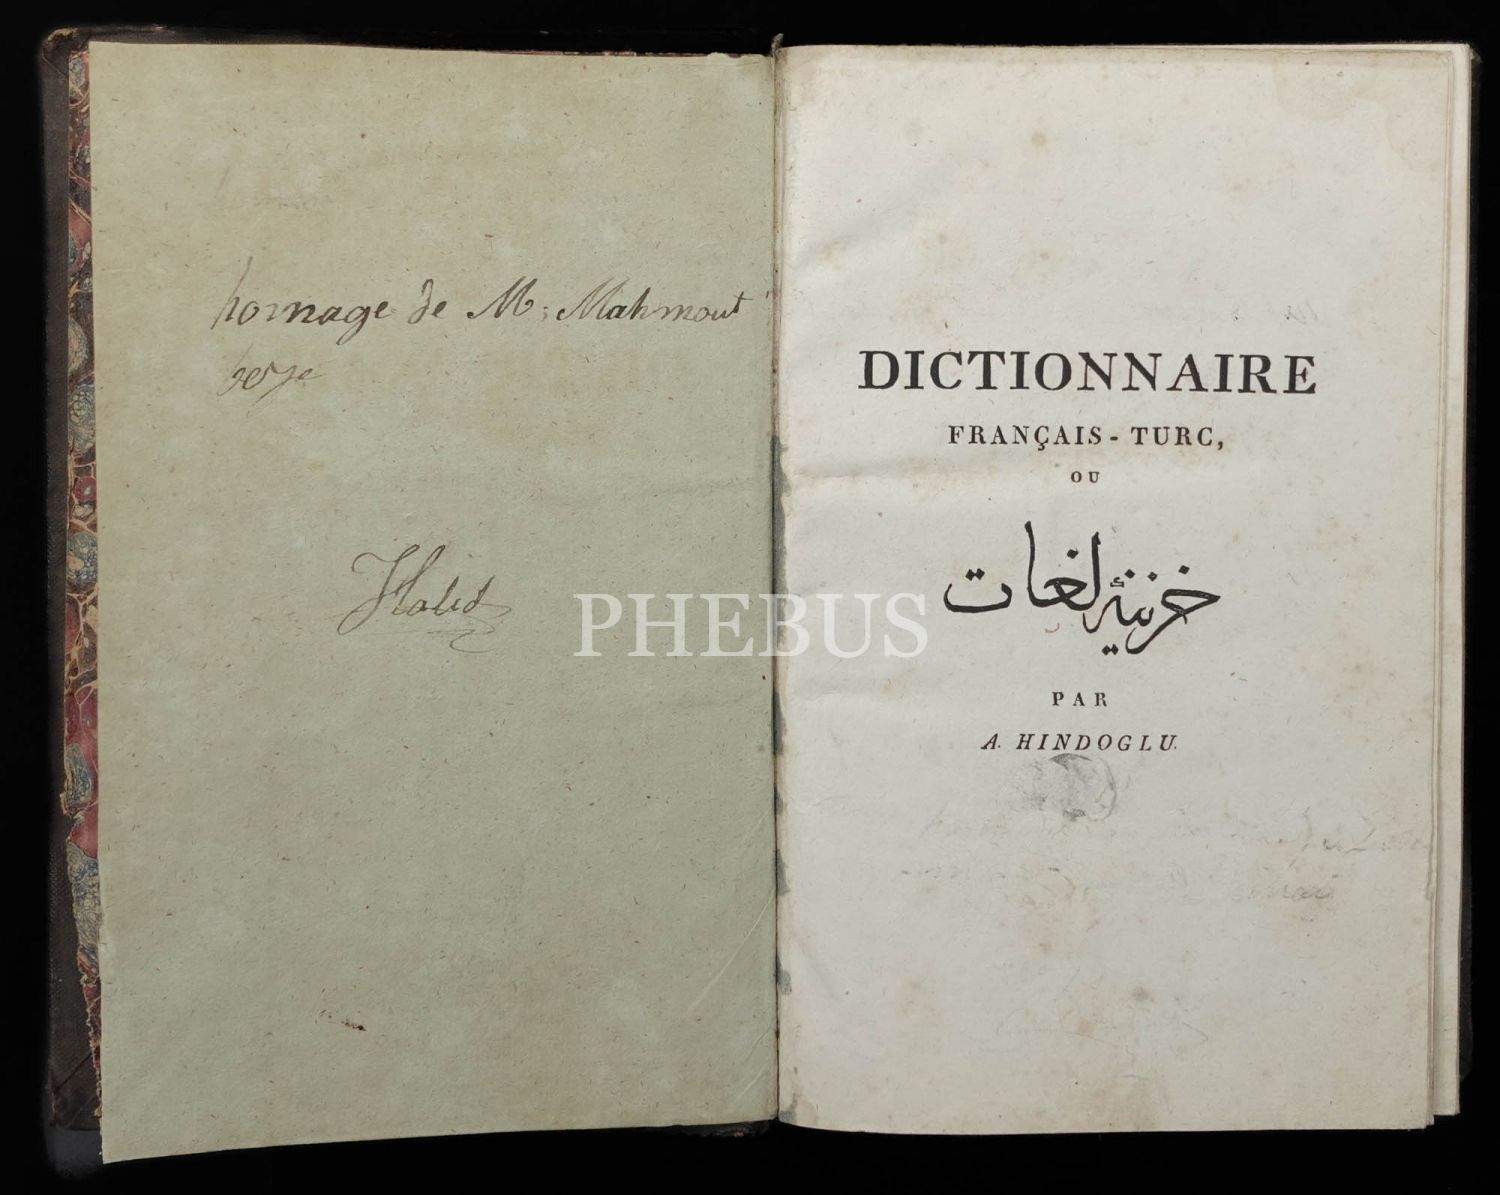 homage de M: Mahmout
beye
Halid
PHEBUS
DICTIONNAIRE
FRANÇAIS - TURC,
OU
خزينۀ لغات
PAR
A. HINDOGLU.